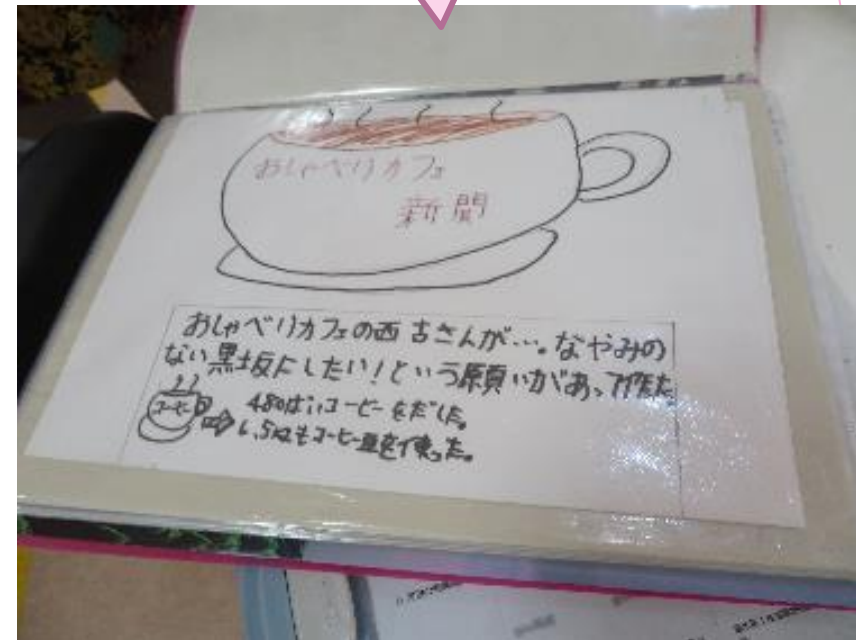 おしゃべりカフェ
新聞
おしゃべりカフェの西古さんが…。なやみの
ない黒坂にしたい！という願いがあって作た
コーヒー
480ぱいコーヒーをだした。
6.5kgもコーヒー豆を使った。